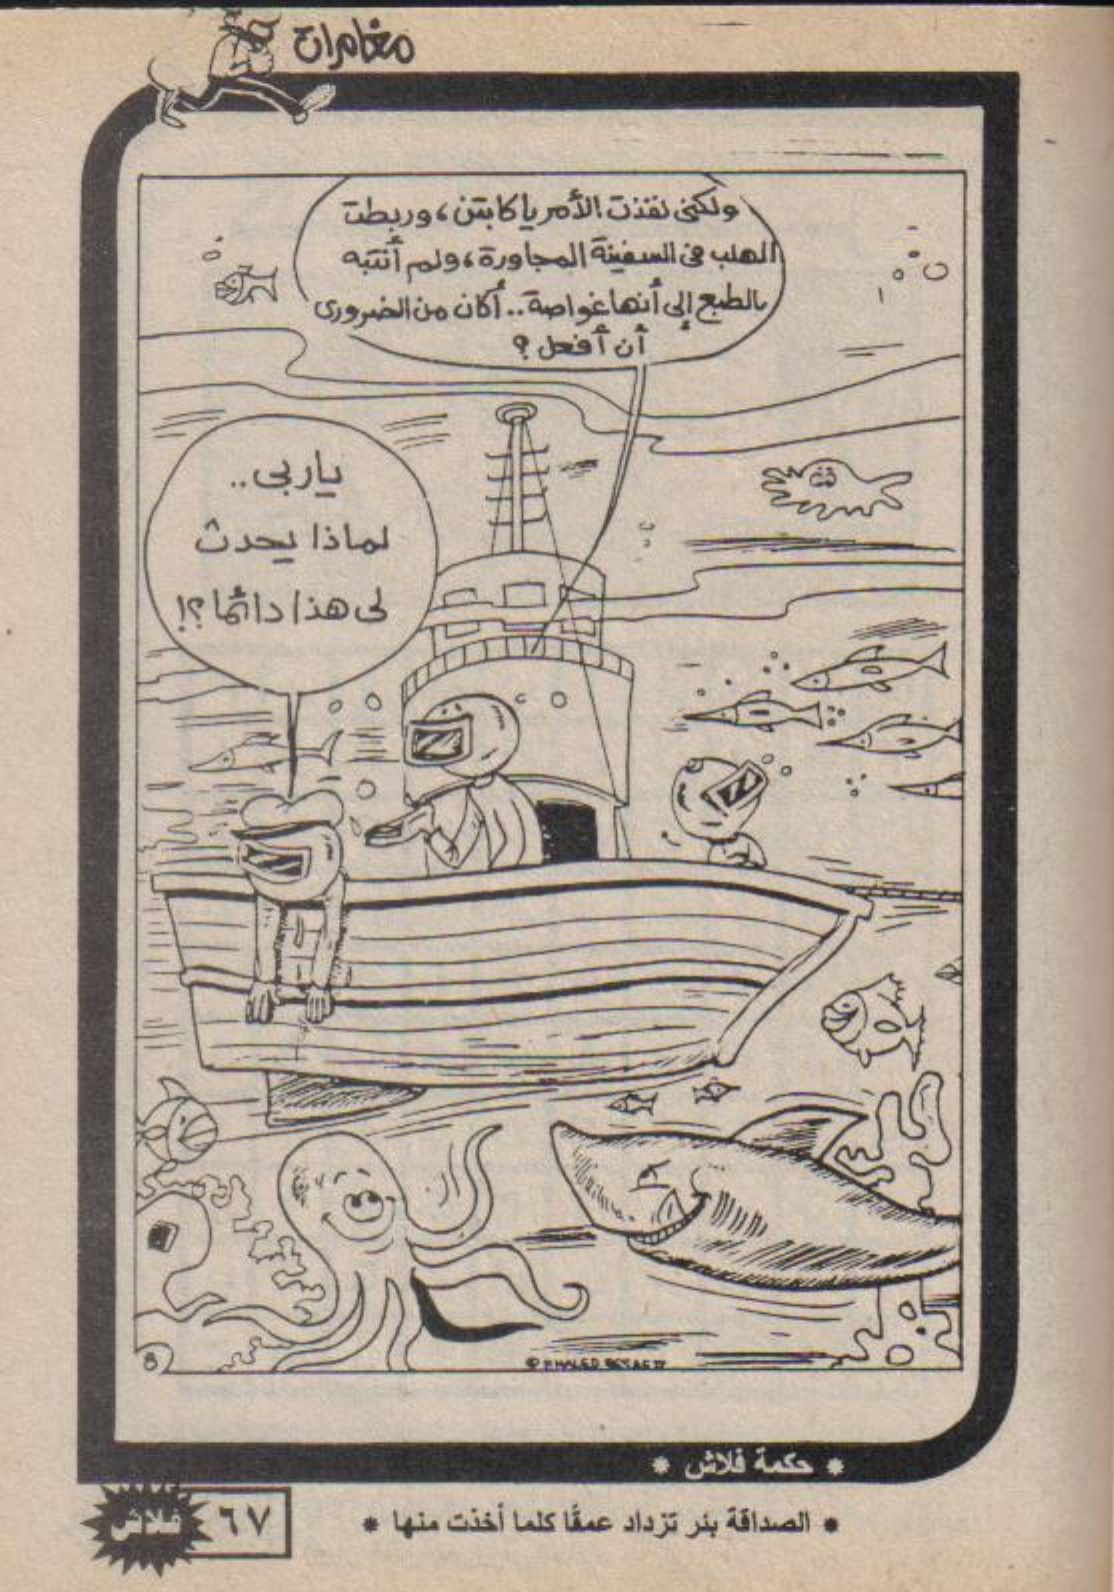 مغامرات
ولكنى نفذت الأمر يا كابتن، وربطت
الهلب فى السفينة المجاورة، ولم أنتبه
بالطبع إلى أنها غواصة.. أكان من الضرورى
أن أفعل ؟
ياربى..
لماذا يحدث
لى هذا دائما؟!
8
© KHALED
* حكمة فلاش *
* الصداقة بئر تزداد عمقًا كلما أخذت منها *
٦٧
فلاش